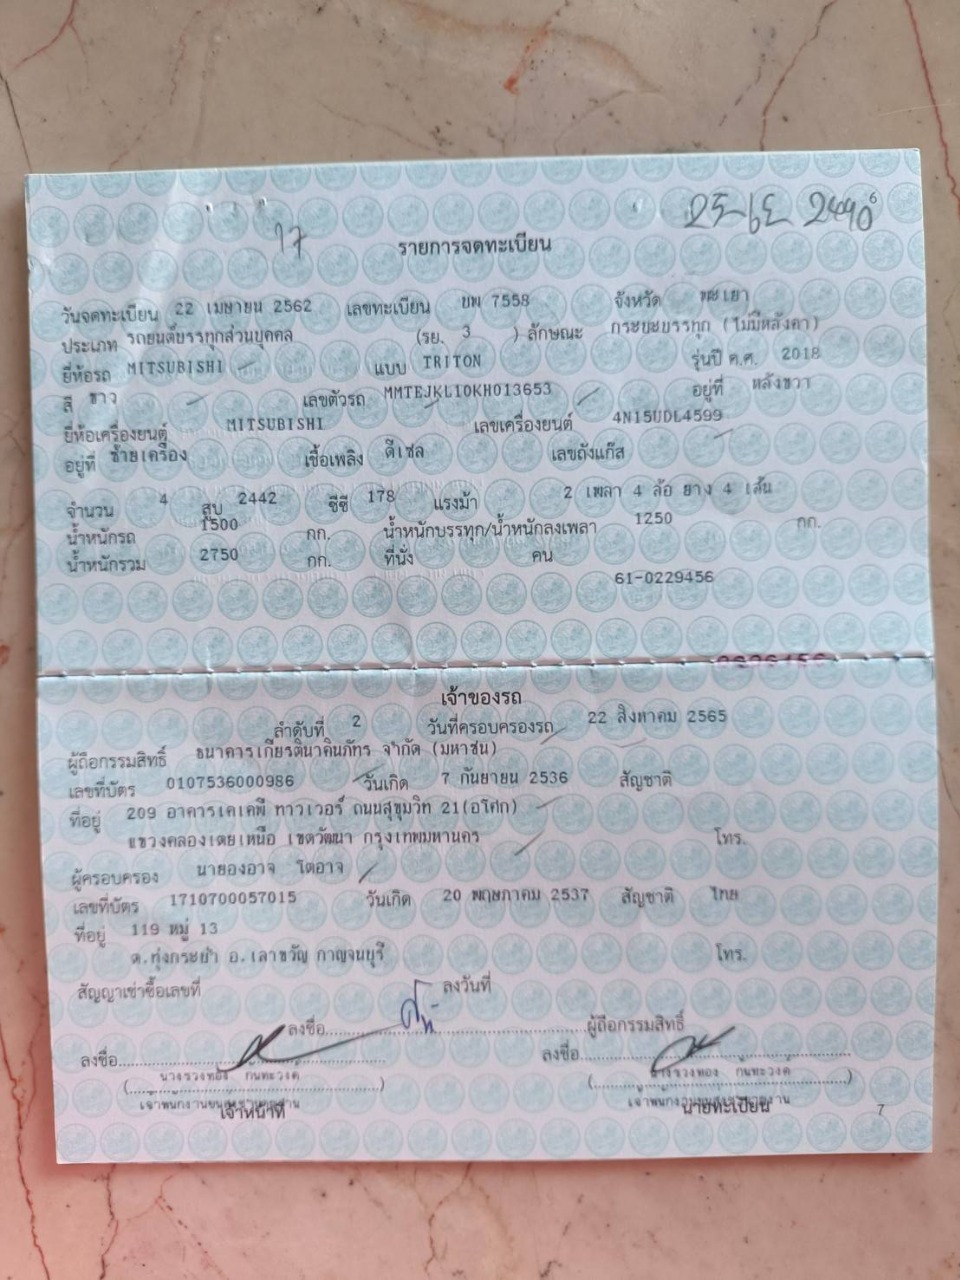 17
รายการจดทะเบียน
วันจดทะเบียน 22 เมษายน 2562 เลขทะเบียน บพ 7558 จังหวัด พะเยา
ประเภท รถยนต์บรรทุกส่วนบุคคล (รย. 3 ) ลักษณะ กระบะบรรทุก (ไม่มีหลังคา)
ยี่ห้อรถ MITSUBISHI แบบ TRITON รุ่นปี ค.ศ. 2018
สี ขาว เลขตัวรถ MMTEJKL10KH013653 อยู่ที่ หลังขวา
ยี่ห้อเครื่องยนต์ MITSUBISHI เลขเครื่องยนต์ 4N15UDL4599
อยู่ที่ ซ้ายเครื่อง เชื้อเพลิง ดีเซล เลขถังแก๊ส
จำนวน 4 สูบ 2442 ซีซี 178 แรงม้า 2 เพลา 4 ล้อ ยาง 4 เส้น
น้ำหนักรถ 1500 กก. น้ำหนักบรรทุก/น้ำหนักลงเพลา 1250 กก.
น้ำหนักรวม 2750 กก. ที่นั่ง คน
61-0229456
เจ้าของรถ
ลำดับที่ 2 วันที่ครอบครองรถ 22 สิงหาคม 2565
ผู้ถือกรรมสิทธิ์ ธนาคารเกียรตินาคินภัทร จำกัด (มหาชน)
เลขที่บัตร 0107536000986 วันเกิด 7 กันยายน 2536 สัญชาติ
ที่อยู่ 209 อาคารเคเคพี ทาวเวอร์ ถนนสุขุมวิท 21(อโศก)
แขวงคลองเตยเหนือ เขตวัฒนา กรุงเทพมหานคร โทร.
ผู้ครอบครอง นายองอาจ โตอาจ
เลขที่บัตร 1710700057015 วันเกิด 20 พฤษภาคม 2537 สัญชาติ ไทย
ที่อยู่ 119 หมู่ 13
ต.ทุ่งกระบ่ำ อ.เลาขวัญ กาญจนบุรี โทร.
สัญญาเช่าซื้อเลขที่ ลงวันที่
ลงชื่อ ผู้ถือกรรมสิทธิ์
ลงชื่อ ลงชื่อ
เจ้าหน้าที่ นายทะเบียน
7